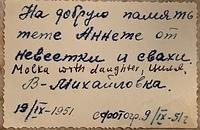 На добрую память
тете Аннете от
невестки и свахи.
Malka with daughter, Циля.
В-Михайловка.
19/IX-1951 сфотогр. 9/IX-51г